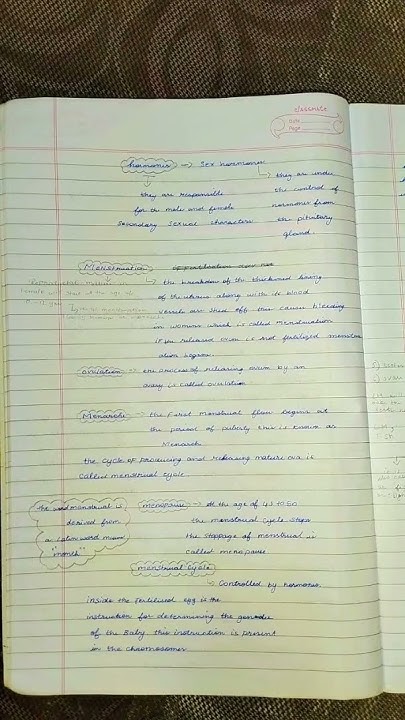 classmate
Date
Page
hormones → Sex hormones
they are responsible
for the male and female
Secondary sexual characters
they are under
the control of
hormones from
the pituitary
gland.
Menstruation
the breakdown of the thickened lining
of the uterus along with its blood
vessels are shed off this cause bleeding
in women which is called menstruation
if the released ovum is not fertilized menstru
ation begins.
ovulation → the process of releasing ovum by an
ovary is called ovulation
Menarche → the First menstrual flow begins at
the period of puberty this is known as
Menarch
the cycle of producing and releasing mature ova is
called menstrual cycle
the word menstrual is
derived from
a Latin word means
"month"
menopause → at the age of 45 to 50
the menstrual cycle stops
the stoppage of menstrual is
called menopause
menstrual cycle
Controlled by hormones
inside the fertilised egg is the
instruction for determining the gender
of the Baby this instruction is present
in the chromosomes